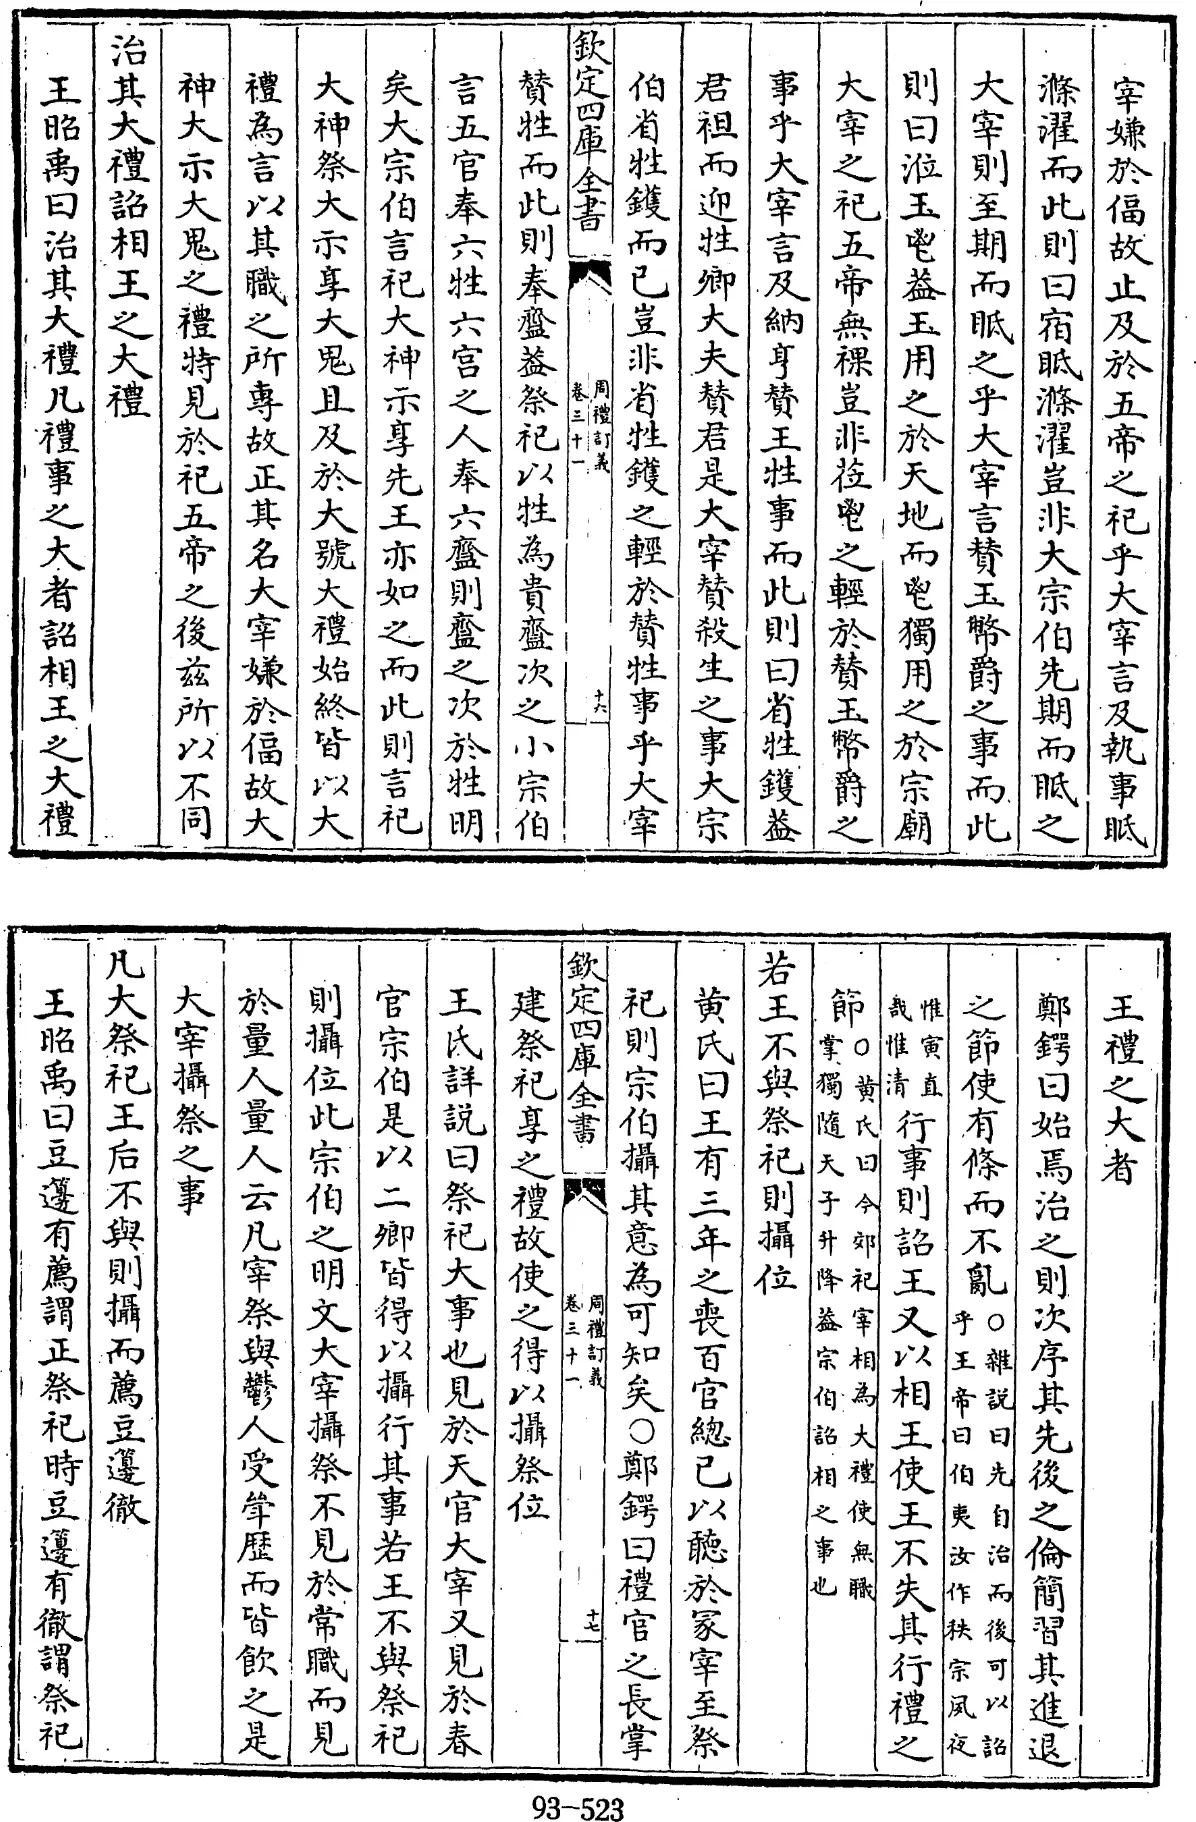 宰嫌於偪故止及於五帝之祀乎大宰言及執事眡
滌濯而此則曰宿眡滌濯豈非大宗伯先期而眡之
大宰則至期而眡之乎大宰言賛玉幣爵之事而此
則曰涖玉鬯葢玉用之於天地而鬯獨用之於宗廟
大宰之祀五帝無祼豈非莅鬯之輕於賛玉幣爵之
事乎大宰言及納亨賛王牲事而此則曰省牲鑊葢
君袒而迎牲卿大夫賛君是大宰賛殺生之事大宗
伯省牲鑊而已豈非省牲鑊之輕於賛牲事乎大宰
欽定四庫全書
周禮訂義
卷三十一
十六
賛牲而此則奉齍葢祭祀以牲為貴齍次之小宗伯
言五官奉六牲六宫之人奉六齍則齍之次於牲明
矣大宗伯言祀大神示享先王亦如之而此則言祀
大神祭大示享大鬼且及於大號大禮始終皆以大
禮為言以其職之所專故正其名大宰嫌於偪故大
神大示大鬼之禮特見於祀五帝之後兹所以不同
治其大禮詔相王之大禮
王昭禹曰治其大禮凡禮事之大者詔相王之大禮
王禮之大者
鄭鍔曰始焉治之則次序其先後之倫簡習其進退
之節使有條而不亂○雜説曰先自治而後可以詔
乎王帝曰伯夷汝作秩宗夙夜
惟寅直
哉惟清行事則詔王又以相王使王不失其行禮之
節○黄氏曰今郊祀宰相為大禮使無職
掌獨隨天子升降葢宗伯詔相之事也
若王不與祭祀則攝位
黄氏曰王有三年之喪百官總已以聽於冢宰至祭
祀則宗伯攝其意為可知矣○鄭鍔曰禮官之長掌
欽定四庫全書
周禮訂義
卷三十一
十七
建祭祀享之禮故使之得以攝祭位
王氏詳説曰祭祀大事也見於天官大宰又見於春
官宗伯是以二卿皆得以攝行其事若王不與祭祀
則攝位此宗伯之明文大宰攝祭不見於常職而見
於量人量人云凡宰祭與鬱人受斝歴而皆飲之是
大宰攝祭之事
凡大祭祀王后不與則攝而薦豆籩徹
王昭禹曰豆籩有薦謂正祭祀時豆籩有徹謂祭祀
93-523